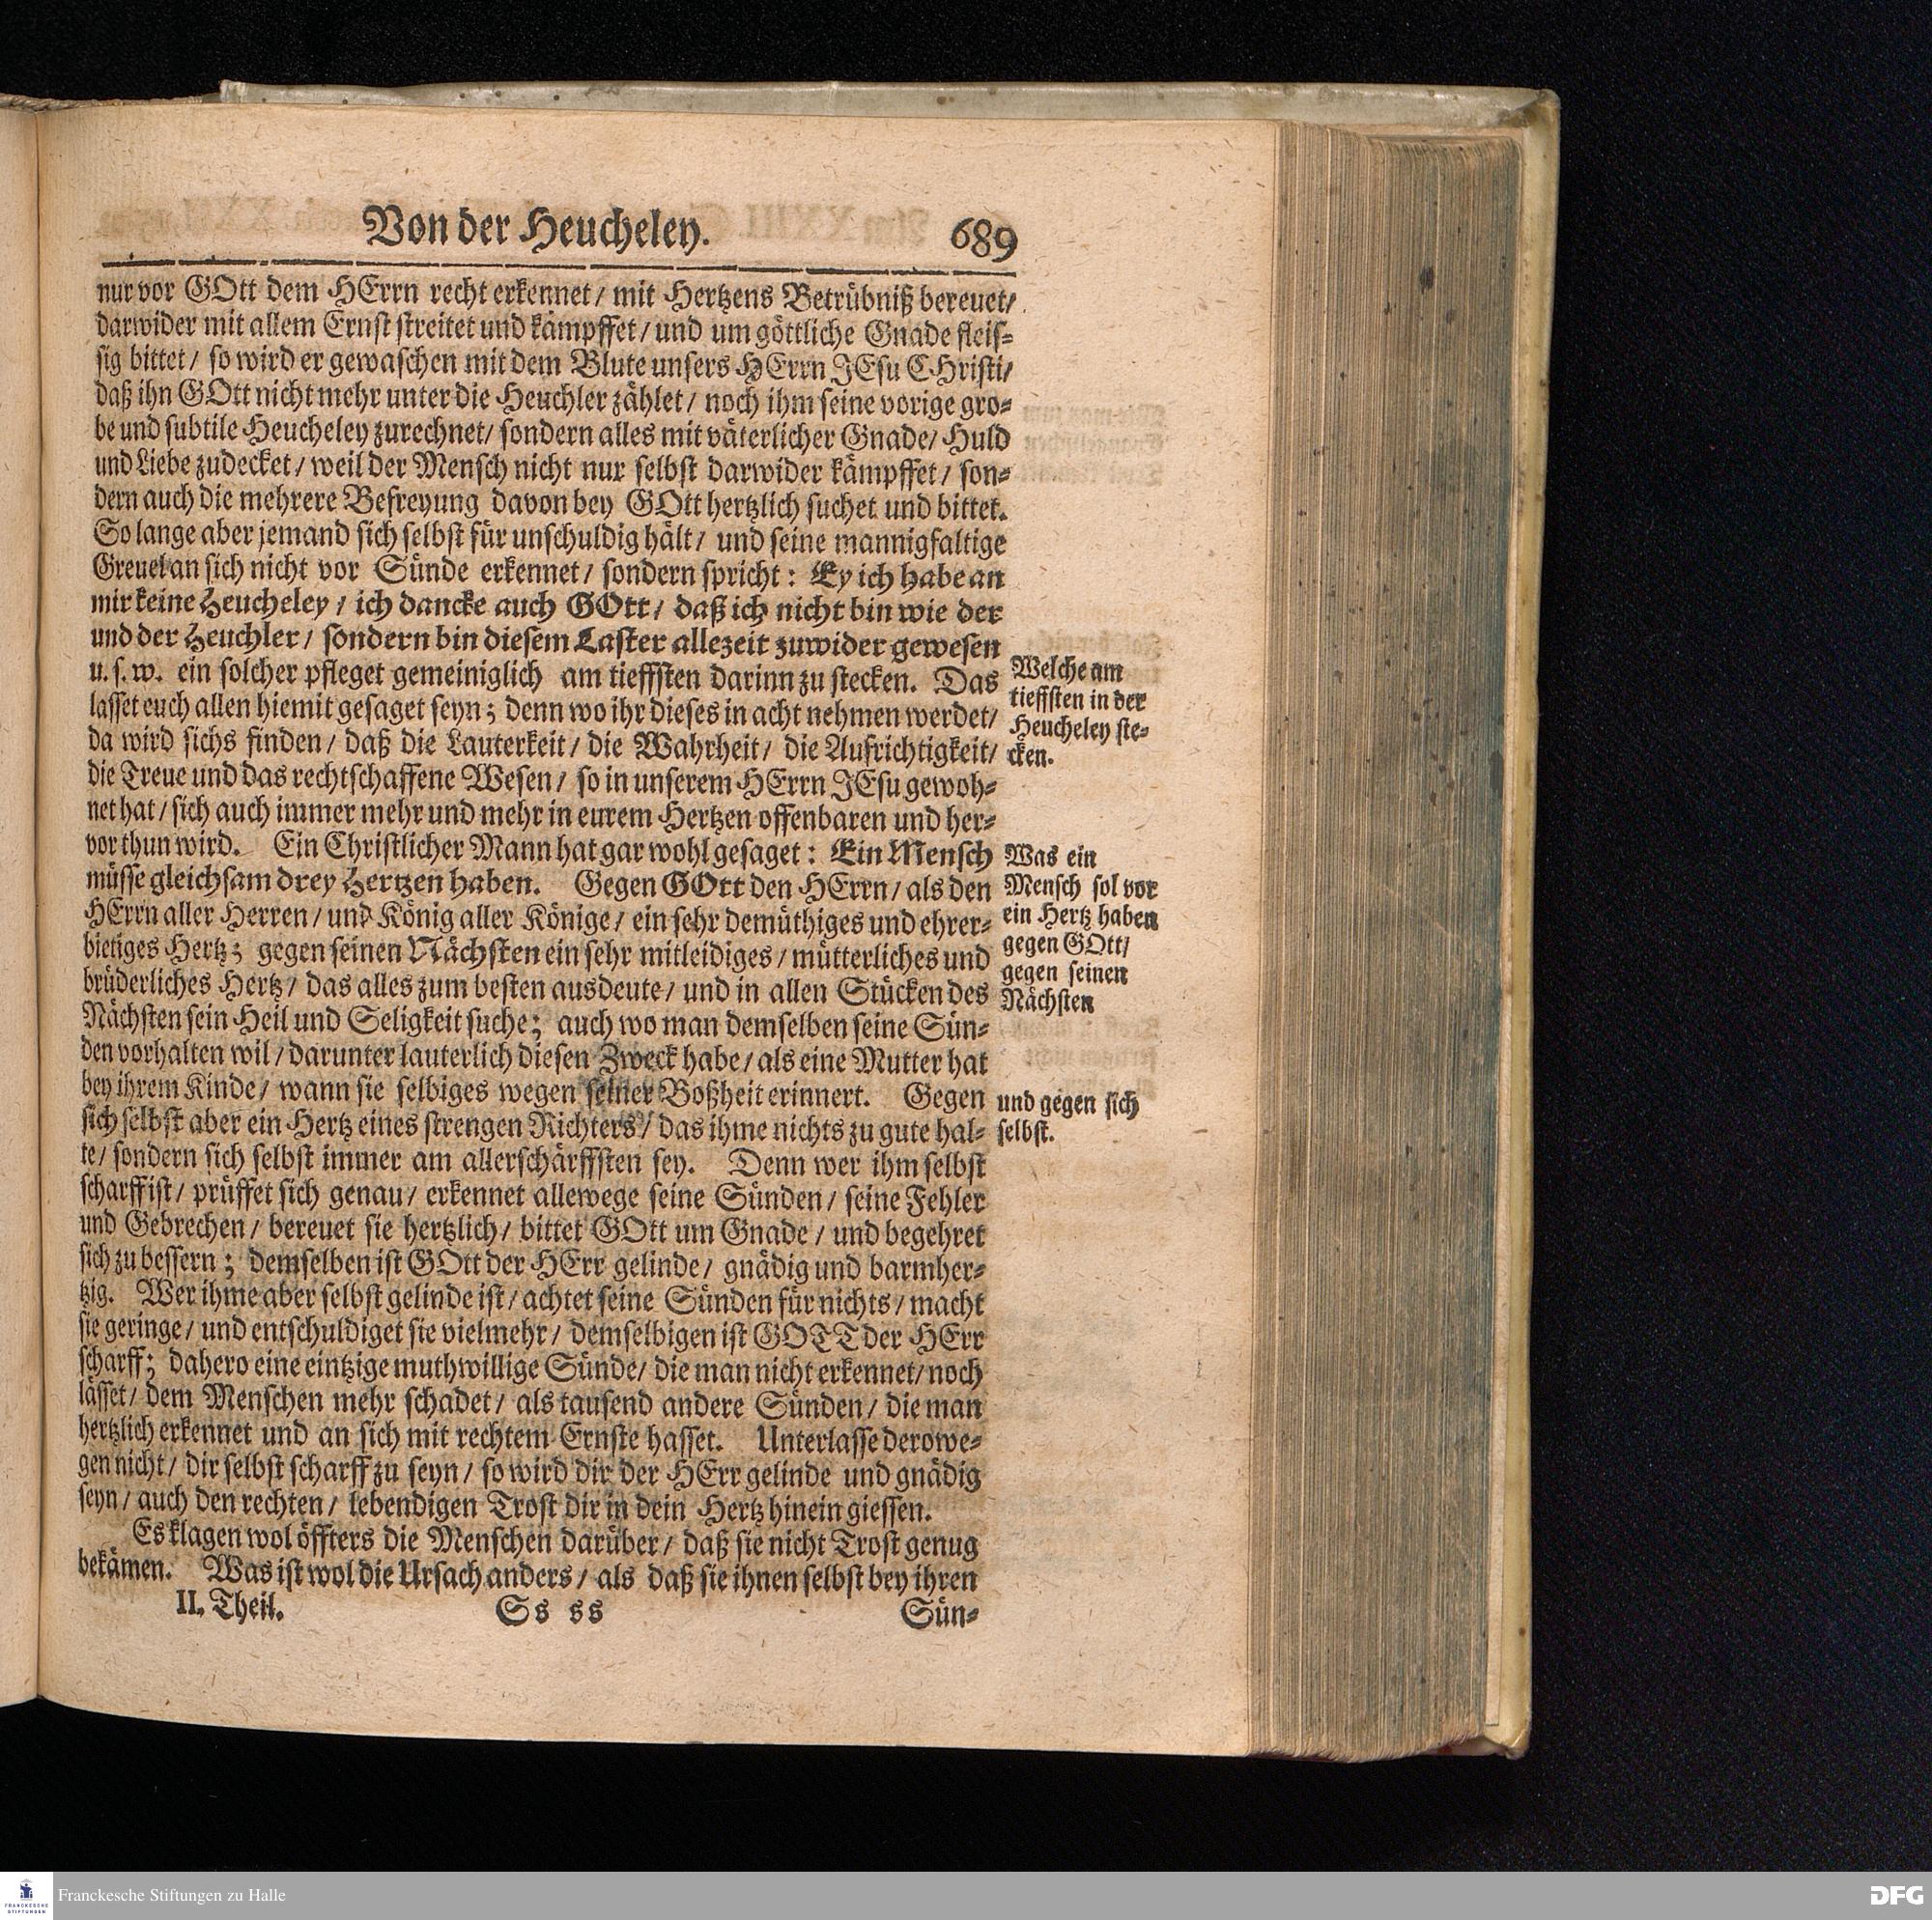 Von der Heucheley. 689
nur vor GOtt dem HErrn recht erkennet / mit Hertzens Betrübniß bereuet /
darwider mit allem Ernst streitet und kämpffet / und um göttliche Gnade fleis-
sig bittet / so wird er gewaschen mit dem Blute unsers HErrn JEsu CHristi /
daß ihn GOtt nicht mehr unter die Heuchler zählet / noch ihm seine vorige gro-
be und subtile Heucheley zurechnet / sondern alles mit väterlicher Gnade / Huld
und Liebe zudecket / weil der Mensch nicht nur selbst darwider kämpffet / son-
dern auch die mehrere Befreyung davon bey GOtt hertzlich suchet und bittet.
So lange aber jemand sich selbst für unschuldig hält / und seine mannigfaltige
Greuel an sich nicht vor Sünde erkennet / sondern spricht: Ey ich habe an
mir keine Heucheley / ich dancke auch GOtt / daß ich nicht bin wie der
und der Heuchler / sondern bin diesem Laster allezeit zuwider gewesen
u. s. w. ein solcher pfleget gemeiniglich am tieffsten darinn zu stecken. Das
lasset euch allen hiemit gesaget seyn; denn wo ihr dieses in acht nehmen werdet /
da wird sichs finden / daß die Lauterkeit / die Wahrheit / die Aufrichtigkeit /
die Treue und das rechtschaffene Wesen / so in unserem HErrn JEsu gewoh-
net hat / sich auch immer mehr und mehr in eurem Hertzen offenbaren und her-
vor thun wird. Ein Christlicher Mann hat gar wohl gesaget: Ein Mensch
müsse gleichsam drey Hertzen haben. Gegen GOtt den HErrn / als den
HErrn aller Herren / und König aller Könige / ein sehr demüthiges und ehrer-
bietiges Hertz; gegen seinen Nächsten ein sehr mitleidiges / mütterliches und
brüderliches Hertz / das alles zum besten ausdeute / und in allen Stücken des
Nächsten sein Heil und Seligkeit suche; auch wo man demselben seine Sün-
den vorhalten wil / darunter lauterlich diesen Zweck habe / als eine Mutter hat
bey ihrem Kinde / wann sie selbiges wegen seiner Boßheit erinnert. Gegen
sich selbst aber ein Hertz eines strengen Richters / das ihme nichts zu gute hal-
te / sondern sich selbst immer am allerschärffsten sey. Denn wer ihm selbst
scharff ist / prüffet sich genau / erkennet allewege seine Sünden / seine Fehler
und Gebrechen / bereuet sie hertzlich / bittet GOtt um Gnade / und begehret
sich zu bessern; demselben ist GOtt der HErr gelinde / gnädig und barmher-
tzig. Wer ihme aber selbst gelinde ist / achtet seine Sünden für nichts / macht
sie geringe / und entschuldiget sie vielmehr / demselbigen ist GOTT der HErr
scharff; dahero eine eintzige muthwillige Sünde / die man nicht erkennet / noch
lässet / dem Menschen mehr schadet / als tausend andere Sünden / die man
hertzlich erkennet und an sich mit rechtem Ernste hasset. Unterlasse derowe-
gen nicht / dir selbst scharff zu seyn / so wird dir der HErr gelinde und gnädig
seyn / auch den rechten / lebendigen Trost dir in dein Hertz hinein giessen.
Es klagen wol öffters die Menschen darüber / daß sie nicht Trost genug
bekämen. Was ist wol die Ursach anders / als daß sie ihnen selbst bey ihren
II. Theil. Ss ss Sün-
Welche am
tieffsten in der
Heucheley ste-
cken.
Was ein
Mensch sol vor
ein Hertz haben
gegen GOtt /
gegen seinen
Nächsten
und gegen sich
selbst.
FRANCKESCHE
STIFTUNGEN
Franckesche Stiftungen zu Halle
DFG